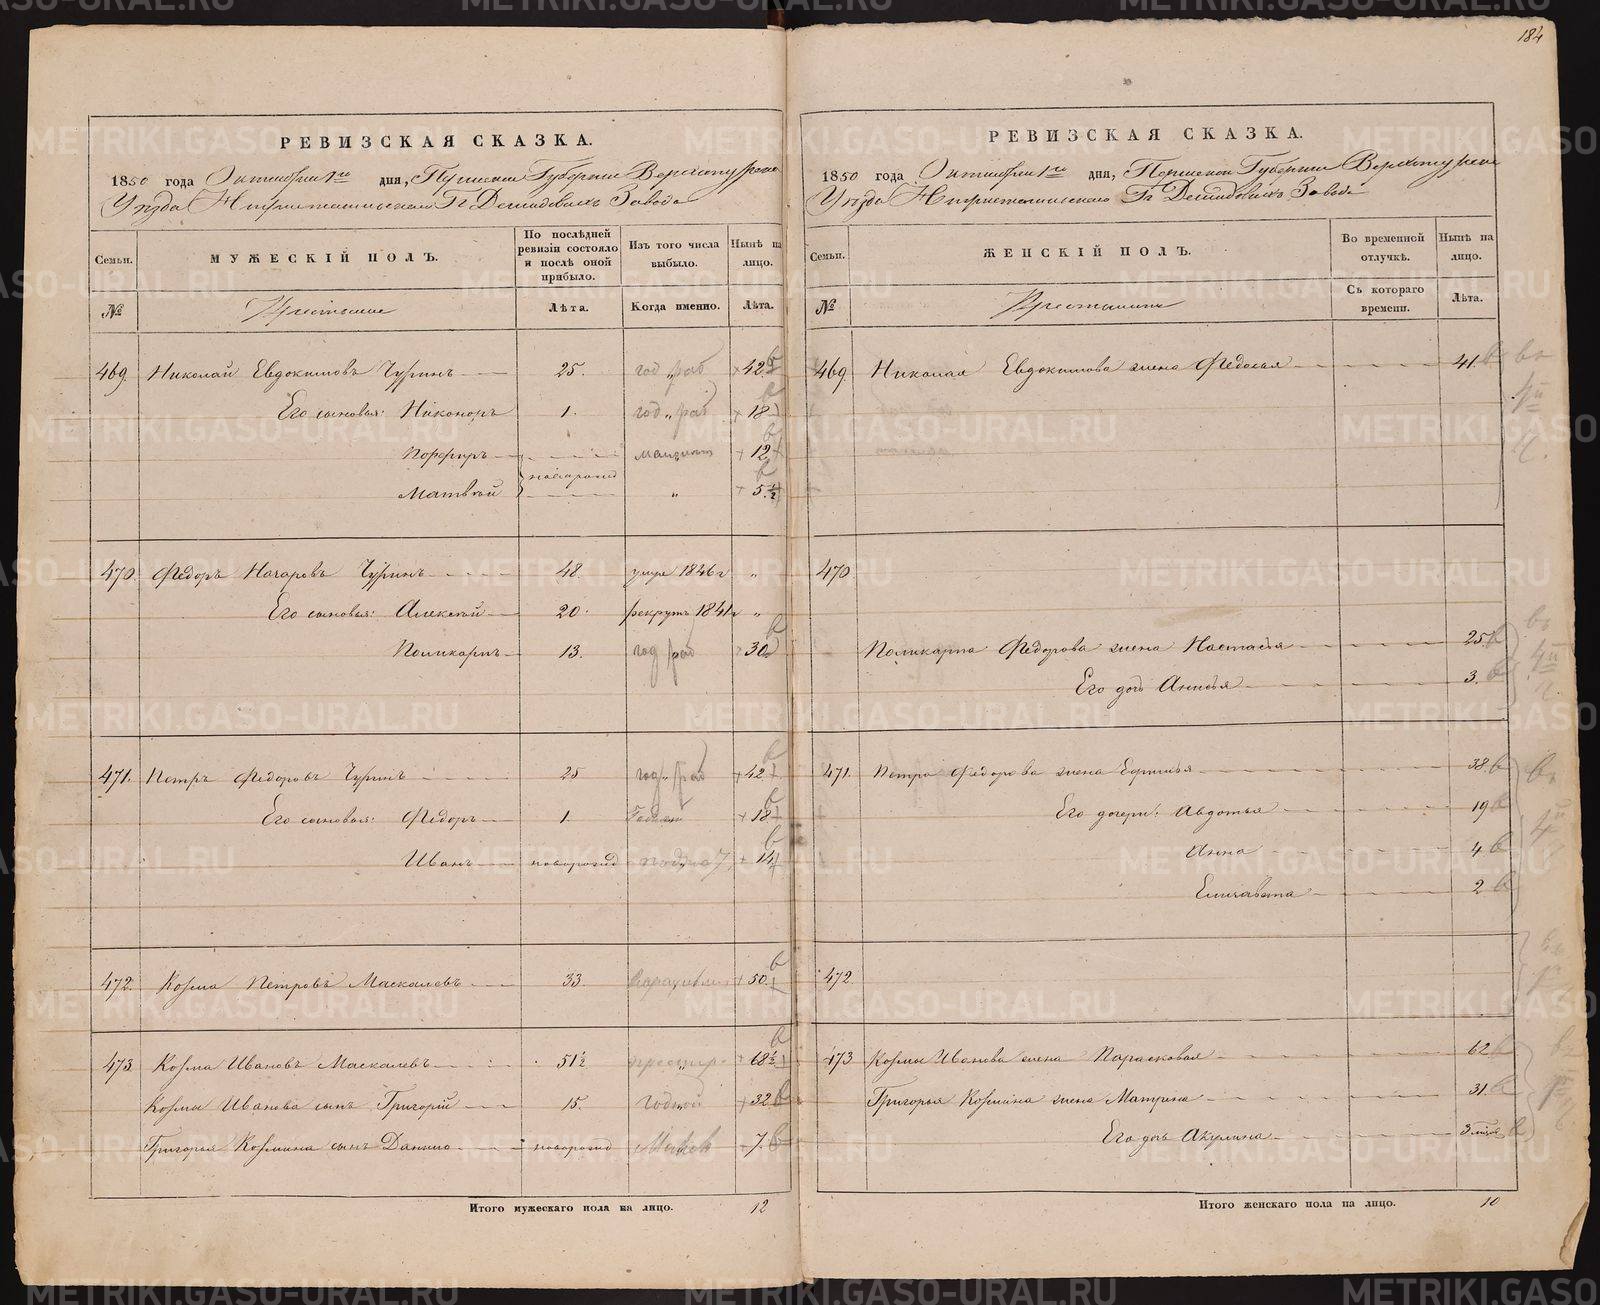 184
РЕВИЗСКАЯ СКАЗКА.
1850 года Октября 1го дня, Пермской Губернии Верхотурскаго
Уѣзда Нижнетагильскаго Гг Демидовыхъ Завода
Семьи.
МУЖЕСКІЙ ПОЛЪ.
По послѣдней ревизіи состояло и послѣ оной прибыло.
Изъ того числа выбыло.
Нынѣ на лицо.
№
Крестьяне
Лѣта.
Когда именно.
Лѣта.
469. Николай Евдокимовъ Чуринъ 25. год. раб 42
Его сыновья: Никоноръ 1. год. раб 18
Порфиръ новорожд 12
Матвѣй " 5 1/2
470. Федоръ Назаровъ Чуринъ 48. умре 1846 г "
Его сыновья: Алексѣй 20. рекрутъ 1841 г "
Поликарпъ 13. год раб 30
471. Петръ Федоровъ Чуринъ 25 год. раб 42
Его сыновья: Федоръ 1. 18
Иванъ новорожд 14
472. Козма Петровъ Маскалевъ 33 50
473. Козма Ивановъ Маскалевъ 51 1/2 68 1/2
Козмы Иванова сынъ Григорій 15. Годной 32
Григорья Козмина сынъ Данило новорожд 7
Итого мужескаго пола на лицо. 12
РЕВИЗСКАЯ СКАЗКА.
1850 года Октября 1го дня, Пермской Губернии Верхотурскаго
Уѣзда Нижнетагильскаго Гг Демидовыхъ Завода
Семьи.
ЖЕНСКІЙ ПОЛЪ.
Во временной отлучкѣ.
Нынѣ на лицо.
№
Крестьянки
Съ котораго времени.
Лѣта.
469. Николая Евдокимова жена Федосья 41
470.
Поликарпа Федорова жена Настасья 25
Его дочь Анисья 3.
471. Петра Федорова жена Ефимья 38
Его дочери: Авдотья 19
Анна 4
Елизавета 2
472.
473 Козмы Иванова жена Парасковья 62
Григорья Козмина жена Матрена 31.
Его дочь Акулина 3 мѣся
Итого женскаго пола на лицо. 10
METRIKI.GASO-URAL.RU